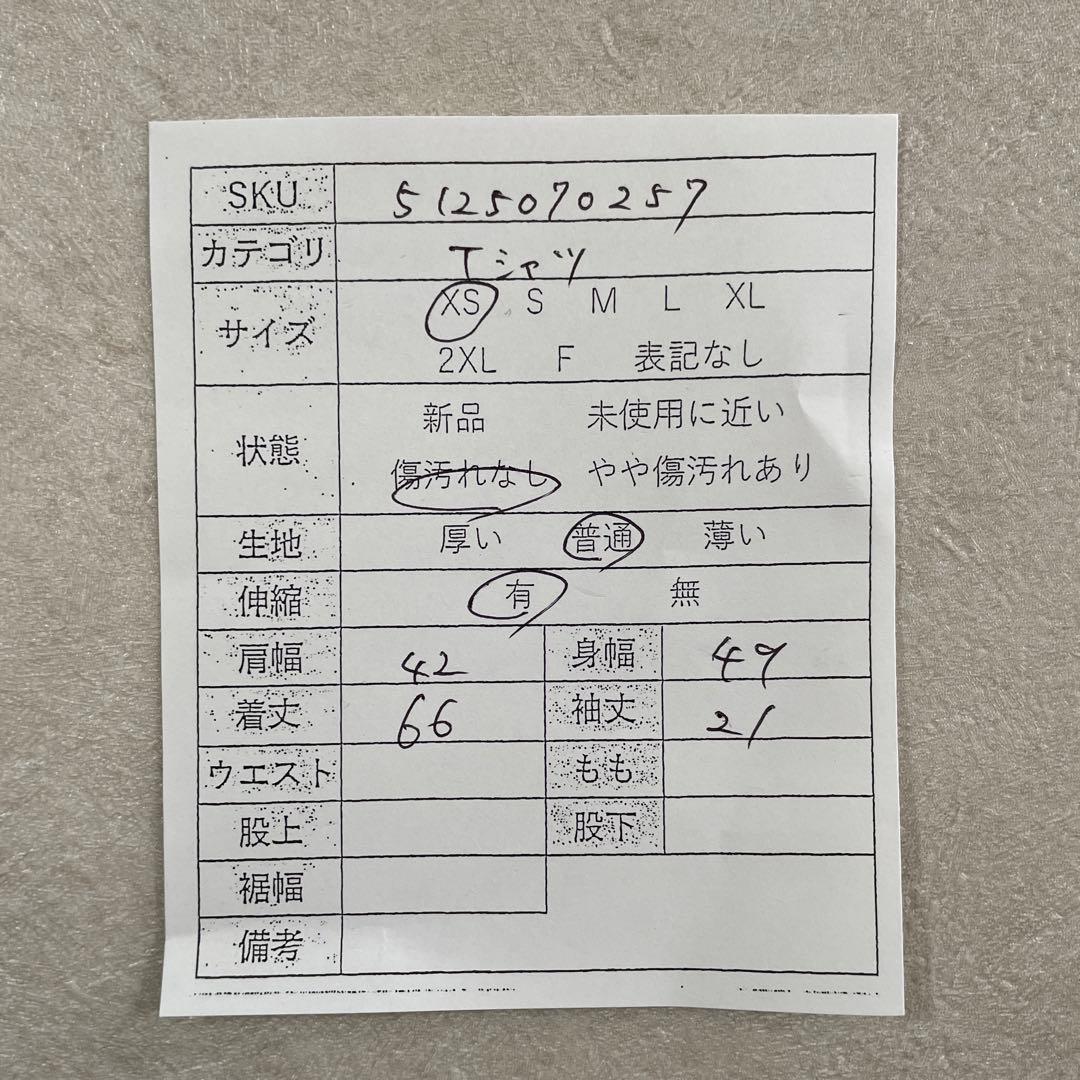 SKU 5125070257
カテゴリ Tシャツ
サイズ XS S M L XL
2XL F 表記なし
状態 新品 未使用に近い
傷汚れなし やや傷汚れあり
生地 厚い 普通 薄い
伸縮 有 無
肩幅 42 身幅 49
着丈 66 袖丈 21
ウエスト もも
股上 股下
裾幅
備考